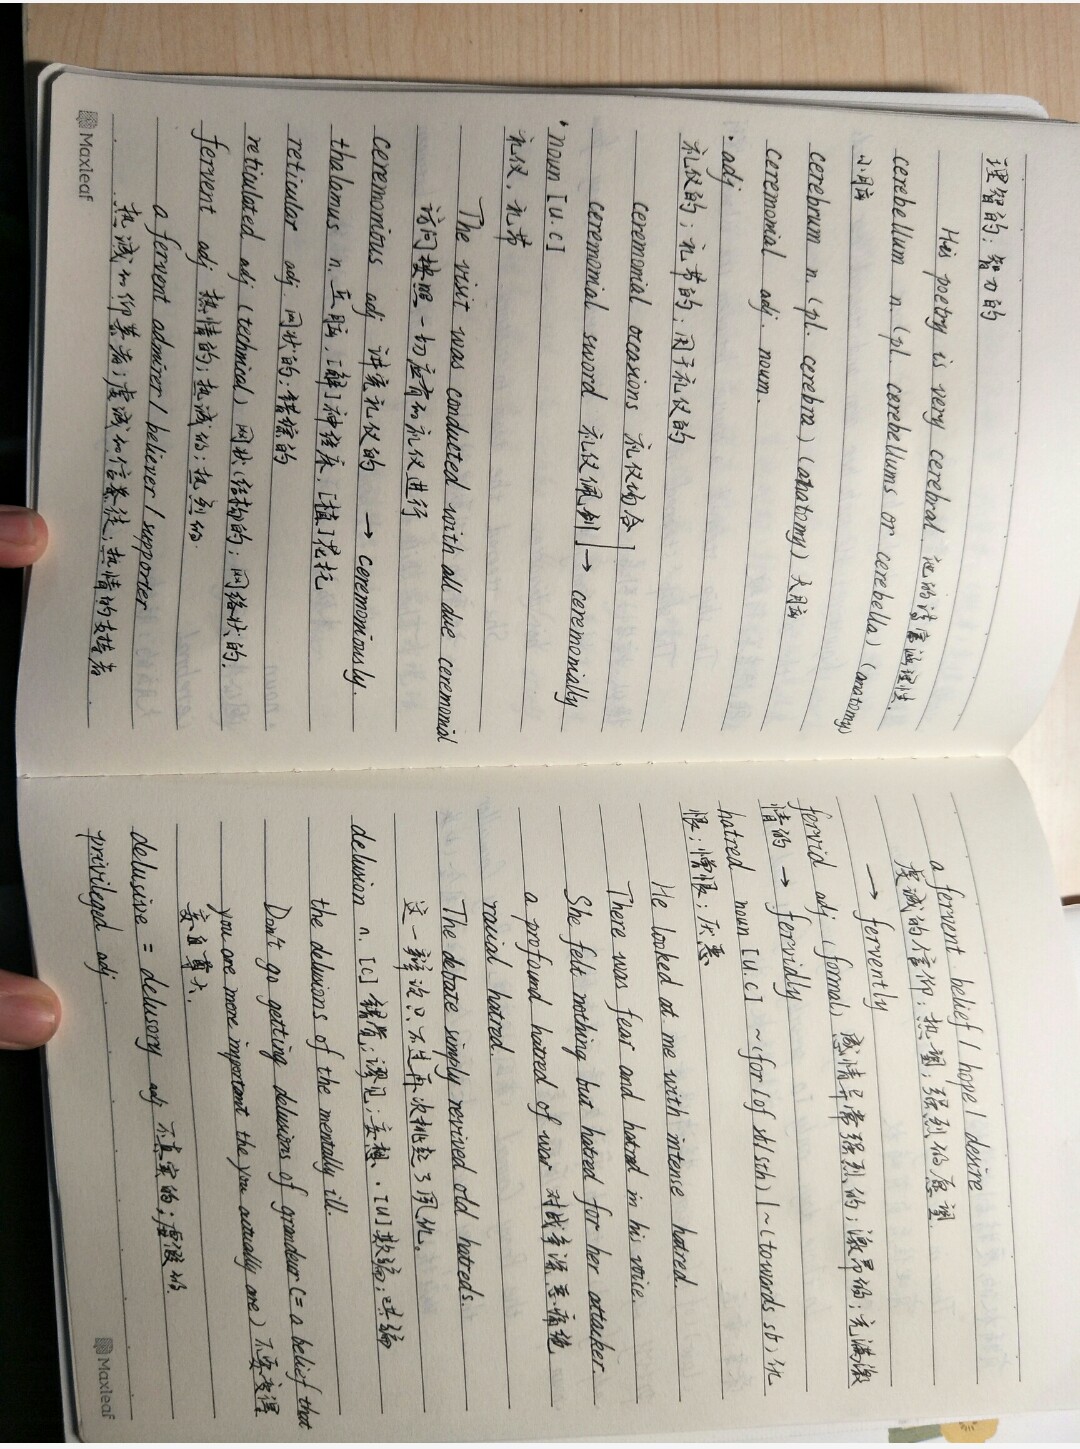 理智的；智力的
His poetry is very cerebral. 他的诗富涵理性.
cerebellum n. (pl. cerebellums or cerebella) (anatomy)
小脑
cerebrum n. (pl. cerebra) (anatomy) 大脑
ceremonial adj. noun.
· adj
礼仪的；礼节的；用于礼仪的
ceremonial occasions 礼仪场合
ceremonial sword 礼仪佩剑 → ceremonially
· noun [U.C]
礼仪，礼节
The visit was conducted with all due ceremonial
访问按照一切应有的礼仪进行
ceremonious adj 讲究礼仪的 → ceremoniously.
thalamus n. 丘脑，[解]神经床，[植]花托
reticular adj. 网状的；错综的
reticulated adj (technical) 网状(结构)的；网络状的.
fervent adj 热情的；热诚的；热烈的.
a fervent admirer / believer / supporter
热诚的仰慕者；虔诚的信徒；热情的支持者
Maxleaf
a fervent belief / hope / desire
虔诚的信仰；热望；强烈的愿望
→ fervently
fervid adj (formal) 感情异常强烈的；激昂的；充满激
情的 → fervidly
hatred noun [U.C] ~ (for / of sb / sth) / ~ (towards sb) 仇
恨；憎恨；厌恶
He looked at me with intense hatred.
There was fear and hatred in his voice.
She felt nothing but hatred for her attacker.
a profound hatred of war 对战争深恶痛绝
racial hatred.
The debate simply revived old hatreds.
这一辩论只不过再次挑起了旧仇.
delusion n. [C] 错觉；谬见；妄想. [U] 欺骗；哄骗
the delusions of the mentally ill.
Don't go getting delusions of grandeur (= a belief that
you are more important the you actually are) 不要变得
妄自尊大.
delusive = delusory adj 不真实的；虚假的.
privileged adj
Maxleaf